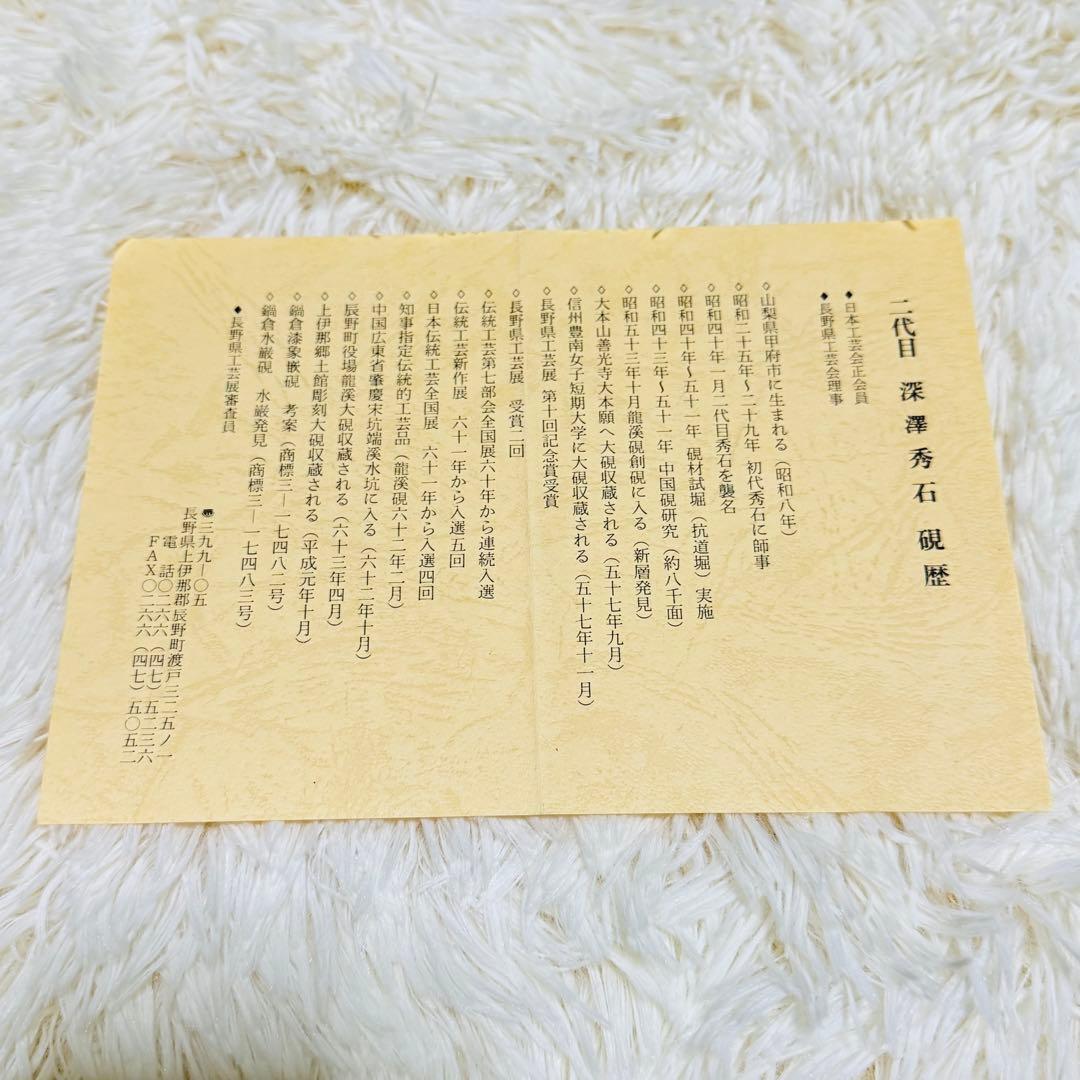 二代目 深澤秀石 硯歴
◆日本工芸会正会員
◆長野県工芸会理事
◇山梨県甲府市に生まれる（昭和八年）
◇昭和二十五年～二十九年 初代秀石に師事
◇昭和四十年一月二代目秀石を襲名
◇昭和四十年～五十一年 硯材試堀（抗道堀）実施
◇昭和四十三年～五十一年 中国硯研究（約八千面）
◇昭和五十三年十月龍溪硯創硯に入る（新層発見）
◇大本山善光寺大本願へ大硯収蔵される（五十七年九月）
◇信州豊南女子短期大学に大硯収蔵される（五十七年十一月）
◇長野県工芸展 第十回記念賞受賞
◇長野県工芸展 受賞二回
◇伝統工芸第七部会全国展六十年から連続入選
◇伝統工芸新作展 六十一年から入選五回
◇日本伝統工芸全国展 六十一年から入選四回
◇知事指定伝統的工芸品（龍溪硯六十二年二月）
◇中国広東省肇慶宋坑端溪水坑に入る（六十二年十月）
◇辰野町役場龍溪大硯収蔵される（六十三年四月）
◇上伊那郷土館彫刻大硯収蔵される（平成元年十月）
◇鍋倉漆象嵌硯 考案（商標三―一七四八二号）
◇鍋倉水巌硯 水巌発見（商標三―一七四八三号）
◆長野県工芸展審査員
〠三九九―〇五
長野県上伊那郡辰野町渡戸三二五ノ一
電話〇二六六（四七）五二三六
FAX〇二六六（四七）五〇五二